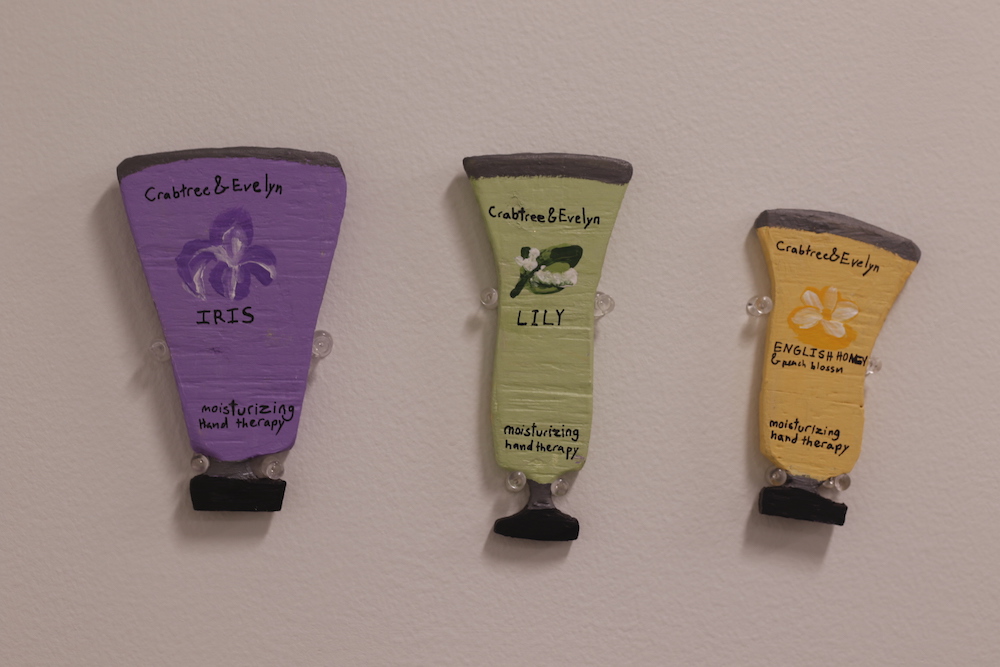 Crabtree & Evelyn
IRIS
moisturizing
Hand therapy
Crabtree & Evelyn
LILY
moisturizing
hand therapy
Crabtree & Evelyn
ENGLISH HONEY
& peach blossm
moisturizing
hand therapy